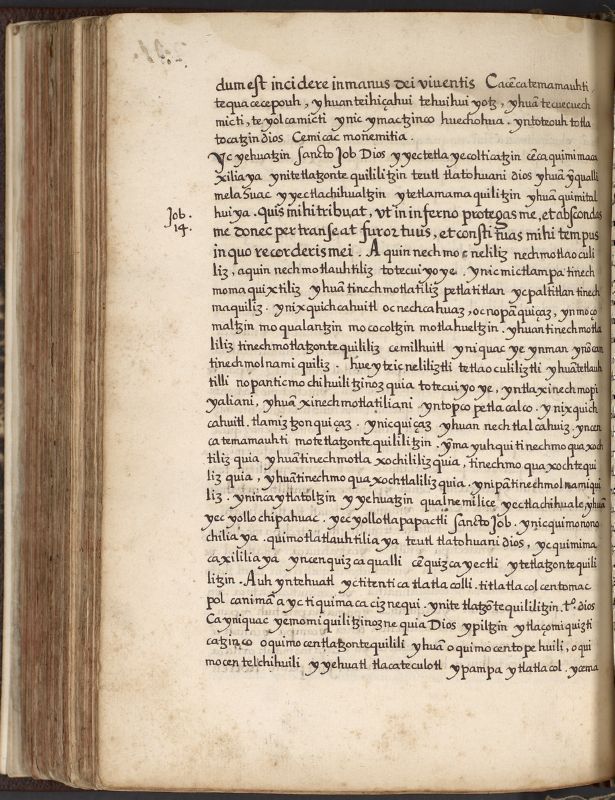 dum est incidere in manus dei viventis Ca cẽca temamauhti,
tequacecepouh, yhuan teihiçahui tehuihuiyotz, yhuã tecuecuech
micti, teyolcamicti ynic ymactzinco huechohua. yntoteouh totla
tocatzin dios Cemicac monemitia.
Yc yehuatzin sancto Job Dios yyectetla yecolticatzin cẽca quimimaca
xiliaya ynitetlatzonte quililitzin teutl tlatohuani dios yhuã yqualli
mela5uac yyectlachihualtzin ytetlamama quilitzin yhuã quimital
Job.
14.
huiya. quis mihi tribuat, vt in inferno protegas me, et abscondas
me donec per transeat furoz tuus, et constituas mihi tempus
in quo recorderis mei. A quin nechmo neliliz nechmotlaoculi
liz, aquin nechmotlauhtiliz totecuiyoye. ynic mictlampa tinech
momaquixtiliz yhuã tinechmotlatiliz petlatitlan ycpaltitlan tinech
maquiliz. ynixquich cahuitl oc nechcahuaz, oc nopã quiçaz, yn moço
maltzin moqualantzin mococoltzin motlahueltzin. yhuan tinechmotla
liliz tinechmotlatzontequililiz cemilhuitl yniquac ye ynman ynõcan
tinechmolnamiquiliz. hueyteicneliliztli tetlaoculiliztli yhuã tetlauh
tilli nopantic mochihuilitzinoz quia totecuiyoye, yntla xinechmopi
yaliani, yhuã xinechmotlatiliani yntopco petlacalco. ynixquich
cahuitl. tlamiztzonquiçaz. ynic quiçaz yhuan nechtlalcahuiz. yncen
ca temamauhti motetlatzontequililitzin. yma yuhqui tinechmo quaxoch
tiliz quia yhuã tinechmotla xochililiz quia, tinechmo quaxochtequi
liz quia, yhuã tinechmo quaxochtlaliliz quia. ynipã tinechmolnamiqui
liz. ynin ca ytlatoltzin yyehuatzin qualnemilice yectlachihuale, yhuã
yecyollochipahuac. yecyollotlapapactli sancto Job. ynic quimonono
chiliaya. quimotlatlauhtiliaya teutl tlatohuani dios, yc quimima
caxililiaya yncenquizca qualli cẽquizca yectli ytetlatzontequili
litzin. Auh yntehuatl yctitentica tlatlacolli. titlatlacolcentomac
pol canimã ayc tiquimacaciznequi. ynitetlatzõtequililitzin. tº dios
Ca yniquac yemomiquilitzinoznequia Dios ypiltzin ytlaçomiquizti
catzinco oquimocentlatzontequilili yhuã oquimocentopehuili, oqui
mocentelchihuili yyehuatl tlacateculotl ypampa ytlatlacol. ycema